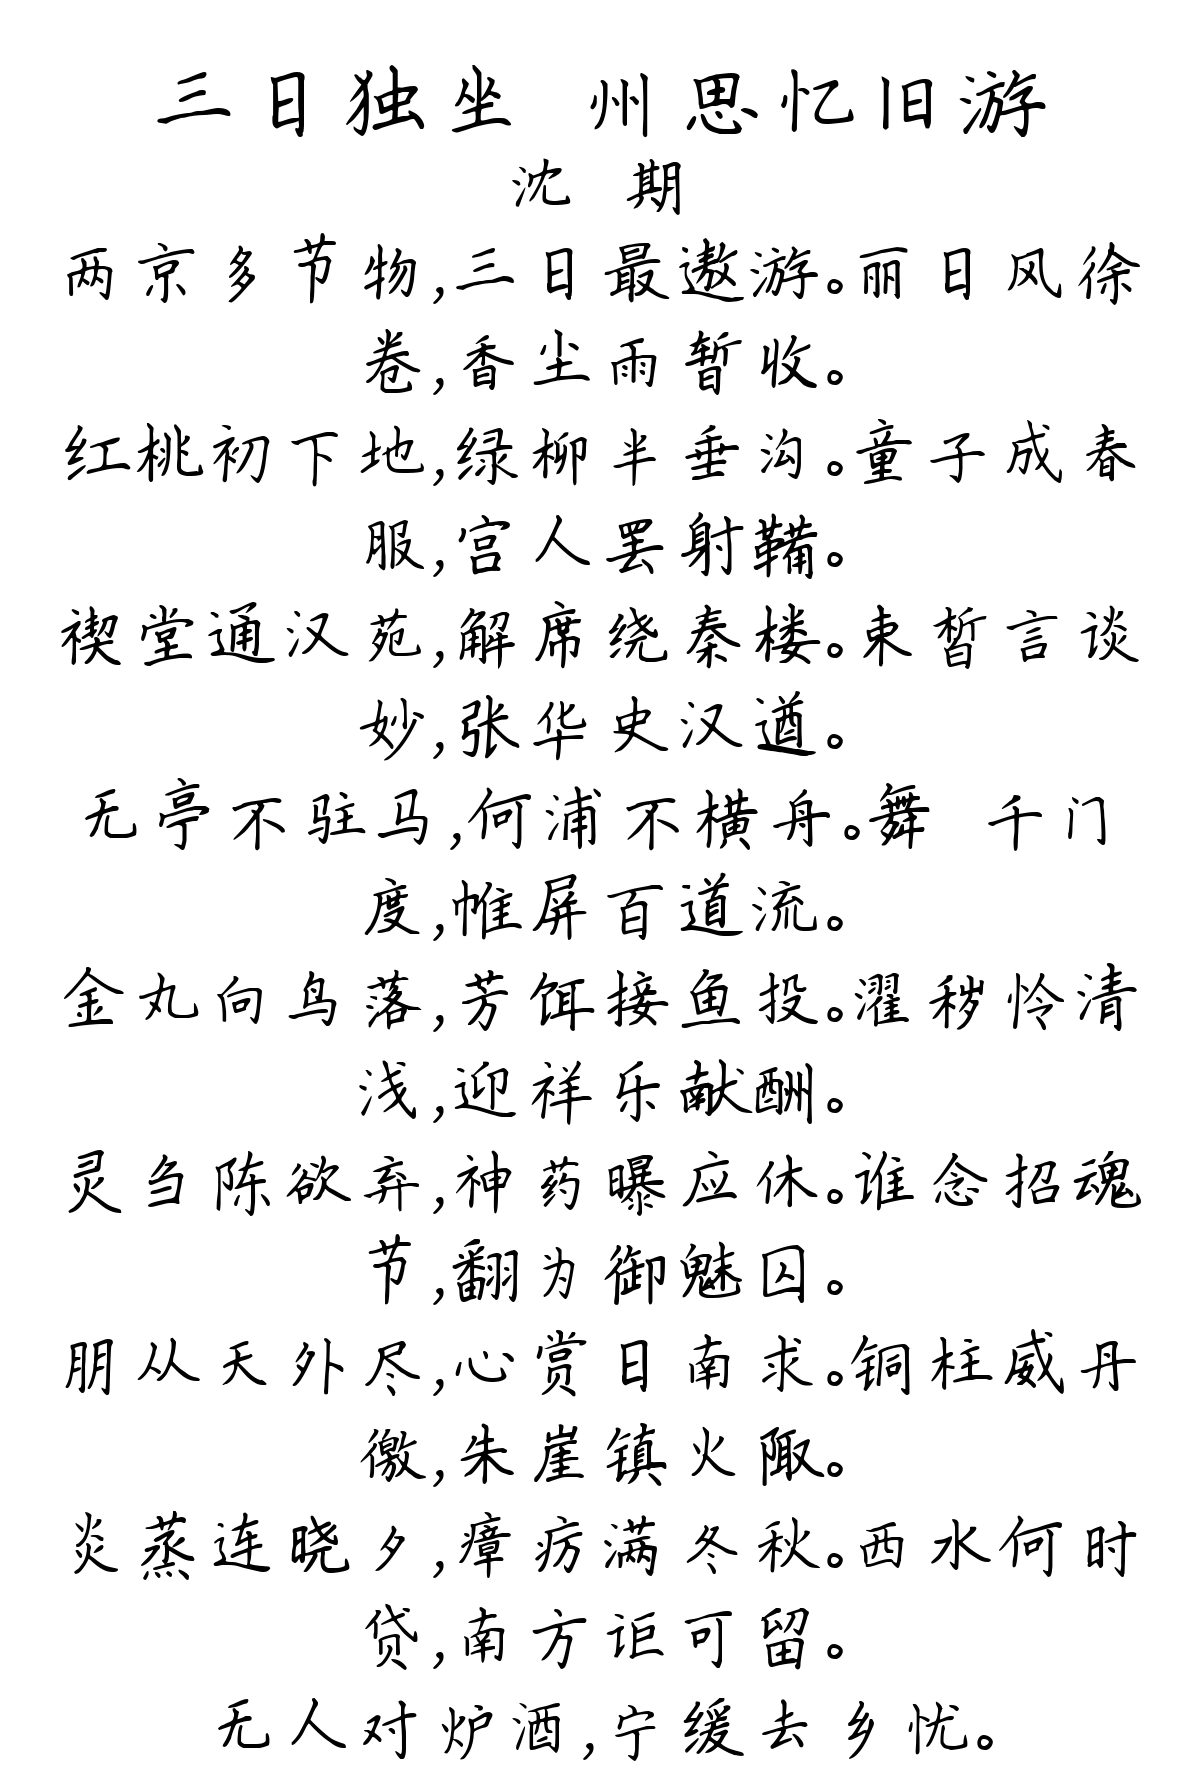 三日独坐 州思忆旧游
沈 期
两京多节物,三日最遨游。丽日风徐
卷,香尘雨暂收。
红桃初下地,绿柳半垂沟。童子成春
服,宫人罢射鞴。
禊堂通汉苑,解席绕秦楼。束皙言谈
妙,张华史汉遒。
无亭不驻马,何浦不横舟。舞 千门
度,帷屏百道流。
金丸向鸟落,芳饵接鱼投。濯秽怜清
浅,迎祥乐献酬。
灵刍陈欲弃,神药曝应休。谁念招魂
节,翻为御魅囚。
朋从天外尽,心赏日南求。铜柱威丹
徼,朱崖镇火陬。
炎蒸连晓夕,瘴疠满冬秋。西水何时
贷,南方讵可留。
无人对炉酒,宁缓去乡忧。